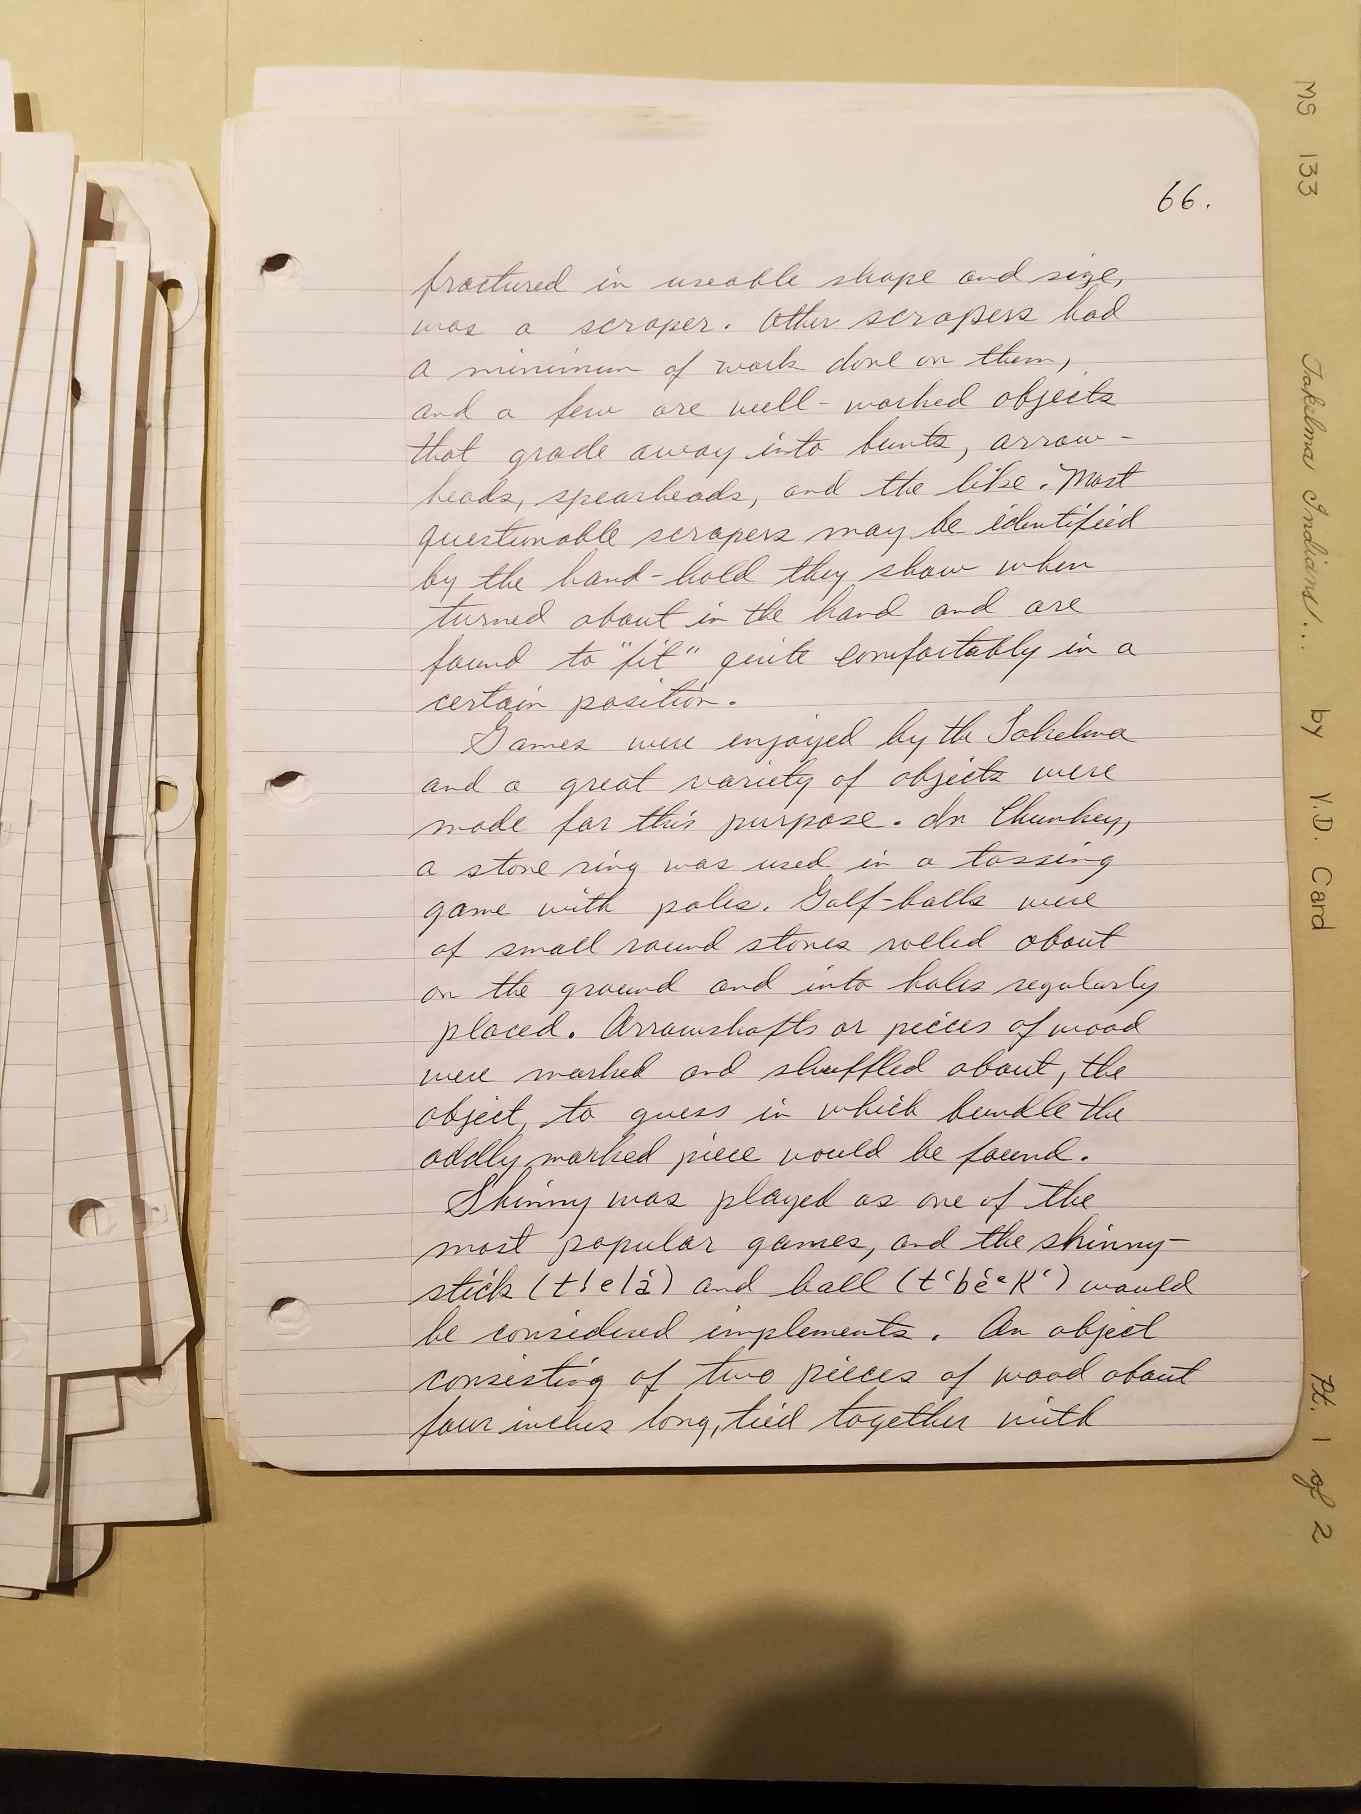 66.
fractured in useable shape and size,
was a scraper. Other scrapers had
a minimum of work done on them,
and a few are well-worked objects
that grade away into bunts, arrow-
heads, spearheads, and the like. Most
questionable scrapers may be identified
by the hand-hold they show when
turned about in the hand and are
found to "fit" quite comfortably in a
certain position.
Games were enjoyed by the Takelma
and a great variety of objects were
made for this purpose. In Chunkey,
a stone ring was used in a tossing
game with poles. Golf-balls were
of small round stones rolled about
on the ground and into holes regularly
placed. Arrowshafts or pieces of wood
were marked and shuffled about, the
object, to guess in which bundle the
oddly marked piece would be found.
Shinny was played as one of the
most popular games, and the shinny-
stick (t!elā́) and ball (t‘bḗᵉk‘) would
be considered implements. An object
consisting of two pieces of wood about
four inches long, tied together with
MS 133 Takelma Indians... by Y.D. Card Pt. 1 of 2